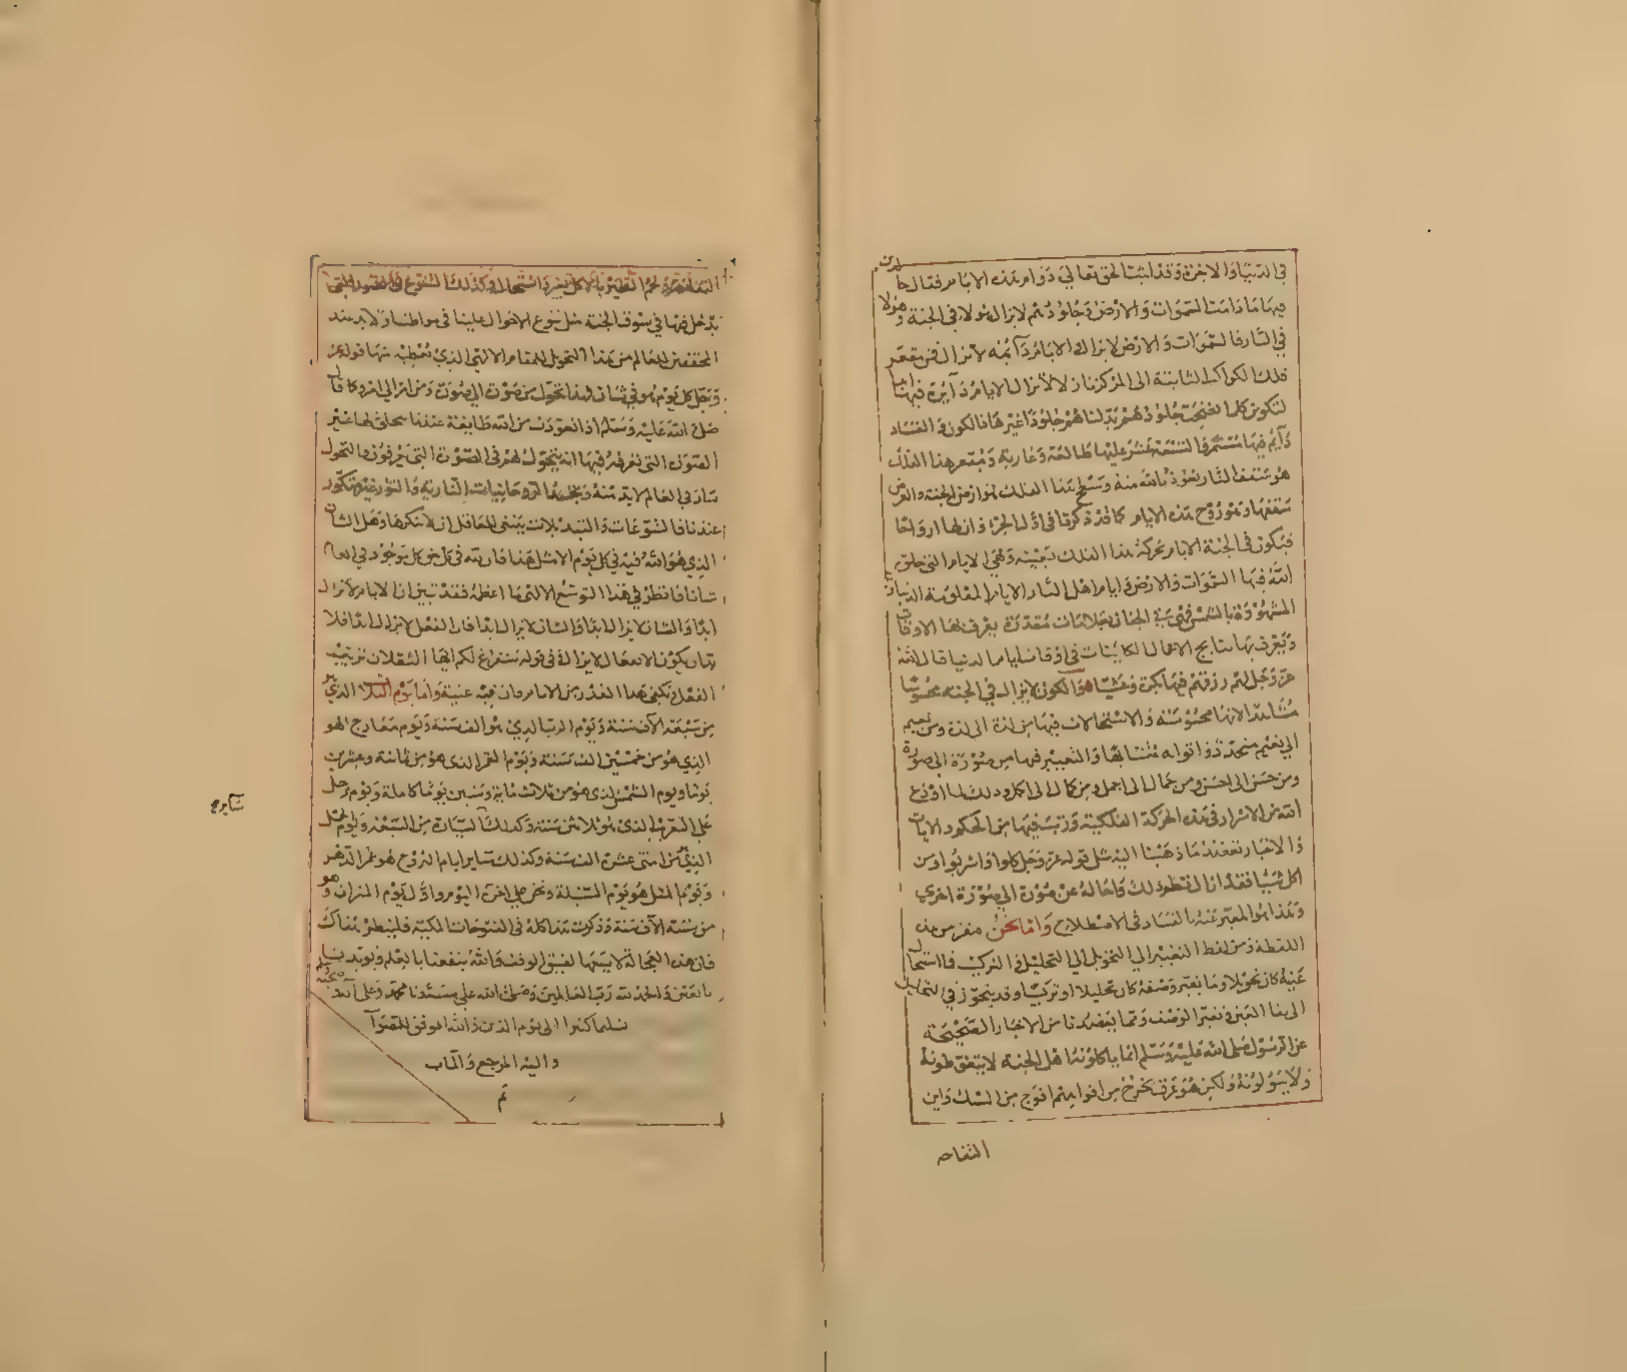 في الدنيا والاخرة وقد اثبت الحق تعالى دوام هذه الايام فقال خالدين
فيها ما دامت السموات والارض وخلودهم لا يزال هولا في الجنة وهولا
في النار فالسموات والارض لا تزال والايام دائمة لا تزال فمن مقعر
فلك الكواكب الثابتة الى المركز نار لا تزال الايام دآيرة فيها ابدا
لتكوين كلما نضجت جلودهم بدلناهم جلودا غيرها فالكون والفساد
دآيم فيها مستمر والتسعة عشر عليها طالعة وغاربة ومقعر هذا الفلك
هو سقف النار نعوذ بالله منه وسطح هذا الفلك هو ارض الجنة والعرش
سقفها وهو روح هذه الايام كما قد ذكرنا في اول الجزء وان لها ارواحا
فيكون في الجنة الايام بحركة هذا الفلك بعينه وهي الايام التي خلق
الله فيها السموات والارض وايام اهل النار الايام المعلومة الدنياوية
المشهودة بالشمس فهي في الجنان بعلامات مقدرة يعرف بها الاوقات
ويعرف بها نتايج الاعمال الكاينات في اوقات ايام الدنيا قال الله
عز وجل لهم رزقهم فيها بكرة وعشيا والكون لا يزال في الجنة محسوسا
مشاهدا لانها محسوسة والاستحالات فيها من لذة الى لذة ومن نعيم
الى نعيم متحدد واتوا به متشابها والتغيير فيها من صورة الى صورة
ومن حسن الى احسن ومن جمال الى اجمل ومن كمال الى اكمل وذلك لما اودع
الله من الاسرار في هذه الحركة الفلكية ورتب فيها من الحكم والايات
والاخبار تعضد ما ذهبنا اليه مثل قوله عز وجل كلوا واشربوا ومن
اكل شيا فقد ازال نظم ذلك واحاله عن صورة الى صورة اخرى
وهذا هو المعبر عنه بالفساد في الاصطلاح واما نحن من هذه
اللفظة ومن لفظ التغيير الى التحويل والى التحليل والتركيب فما استحال
عينه كان تحويلا وما تغير وصفه كان تحليلا او تركيبا وقد يتجوز في التحليل
الى هنا العين في تغير الوصف ومما يعضدنا من الاخبار الصحيحة
عن الرسول صلى الله عليه وسلم انما ياكلونه اهل الجنة لا يتغوطونه
ولا يبولونه ولكن هو عرق يخرج من افواههم افوح من المسك واين
التفاحه
يدخل فيها في سوق الجنة مثل تنوع الاحوال علينا في بواطننا ولا بد عند
المحققين للعالم من هذا التحويل للمقام الالهي الذي تعطيه منها قوله عز
وجل كل يوم هو في شان فهذا تحول من صورة الى صورة ومن امر الى امر وكما قال
صلى الله عليه وسلم اذا تعوذت من الله طايفة عندما يتجلى لها غير
الصورة التي تعرفه فيها انه يتحول لهم في الصورة التي يعرفونها فالتحول
سار في العالم لا بد منه
عندنا فالتنوعات والتبديلات ينبغي للعاقل ان لا ينكرها وهل الشان
الذي هو الله فيه في كل يوم الا مثل هذا فان له في حق كل موجود في العالم
شانا فانظر في هذا التوسع الالهي ما اعظمه فقد تبين ان الايام لا تزال
ابدا والشان لا يزال ابدا فان الفعل لا يزال ابدا فلا
بد ان يكون الانفعال لا يزال وفي قوله سنفرغ لكم ايها الثقلان ترتيب
الفعل ويكفي هذا القدر من الايام فان فيه غنية واما يوم المثل الذي هو
من سبعة الآف سنة ويوم الرب الذي هو الف سنة ويوم معارج الهو
الذي هو من خمسين الف سنة ويوم القمر الذي هو من ثمانية وعشرين
يوما ويوم الشمس الذي هو من ثلاث مائة وستين يوما كاملة ويوم زحل
على التقريب الذي هو ثلاثين سنة وكذلك السيارة من السبعة ويوم الحمل
الذي من اثني عشرة الف سنة وكذلك ساير ايام البروج هو عمر الدهر
ويوم المثل هو يوم السنبلة ونحن في اخر اليوم واول يوم الميزان وهو
من ستة الآف سنة وذكرت هذا كله في الفتوحات المكية فلينظر هناك
فان هذه العجالة لا يسعها لضيق الوقت والله ينفعنا بالعلم ويويدنا
بالعين والحمد لله رب العالمين وصلى الله على سيدنا محمد وعلى آله وصحبه وسلم
تسليما كثيرا الى يوم الدين والله الموفق للصواب
واليه المرجع والمآب
تم